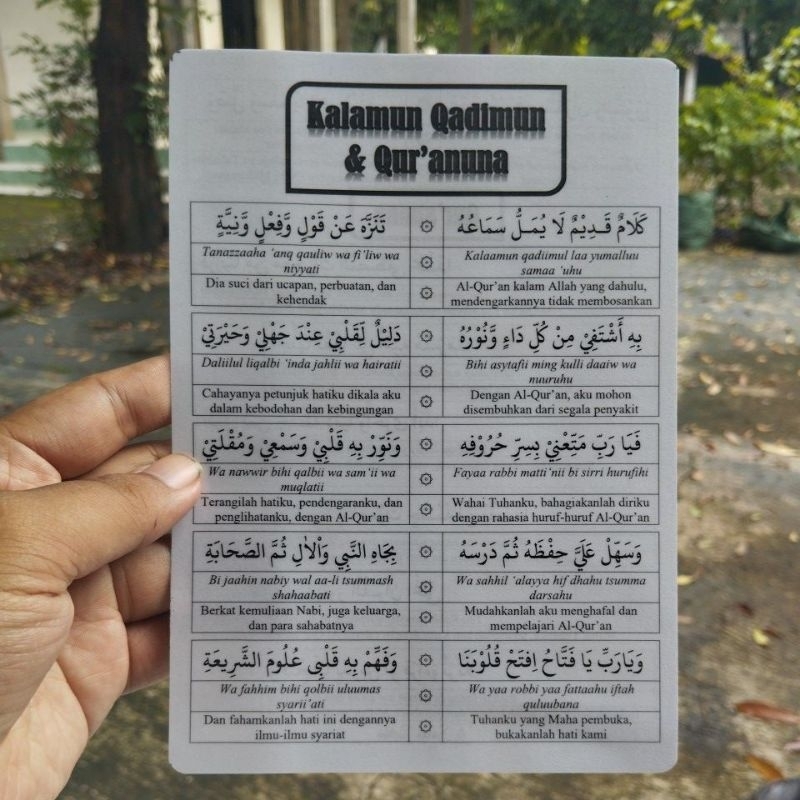 Kalamun Qadimun
& Qur'anuna
كَلَامٌ قَدِيْمٌ لَا يُمَلُّ سَمَاعُهُ ۞ تَنَزَّهَ عَنْ قَوْلٍ وَّفِعْلٍ وَّنِيَّةٍ
Kalaamun qadiimul laa yumalluu
samaa 'uhu
Tanazzaaha 'anq qauliw wa fi'liw wa
niyyati
Al-Qur'an kalam Allah yang dahulu,
mendengarkannya tidak membosankan
Dia suci dari ucapan, perbuatan, dan
kehendak
بِهِ أَشْتَفِيْ مِنْ كُلِّ دَاءٍ وَّنُوْرُهُ ۞ دَلِيْلٌ لِّقَلْبِيْ عِنْدَ جَهْلِيْ وَحَيْرَتِيْ
Bihi asytafii ming kulli daaiw wa
nuuruhu
Daliilul liqalbi 'inda jahlii wa hairatii
Dengan Al-Qur'an, aku mohon
disembuhkan dari segala penyakit
Cahayanya petunjuk hatiku dikala aku
dalam kebodohan dan kebingungan
فَيَا رَبِّ مَتِّعْنِيْ بِسِرِّ حُرُوْفِهِ ۞ وَنَوِّرْ بِهِ قَلْبِيْ وَسَمْعِيْ وَمُقْلَتِيْ
Fayaa rabbi matti'nii bi sirri hurufihi
Wa nawwir bihi qalbii wa sam'ii wa
muqlatii
Wahai Tuhanku, bahagiakanlah diriku
dengan rahasia huruf-huruf Al-Qur'an
Terangilah hatiku, pendengaranku, dan
penglihatanku, dengan Al-Qur'an
وَسَهِّلْ عَلَيَّ حِفْظَهُ ثُمَّ دَرْسَهُ ۞ بِجَاهِ النَّبِي وَالْاٰلِ ثُمَّ الصَّحَابَةِ
Wa sahhil 'alayya hif dhahu tsumma
darsahu
Bi jaahin nabiy wal aa-li tsummash
shahaabati
Mudahkanlah aku menghafal dan
mempelajari Al-Qur'an
Berkat kemuliaan Nabi, juga keluarga,
dan para sahabatnya
وَيَارَبِّ يَا فَتَّاحُ اِفتَحْ قُلُوْبَنَا ۞ وَفَهِّمْ بِهِ قَلْبِى عُلُومَ الشَّرِيعَةِ
Wa yaa robbi yaa fattaahu iftah
quluubana
Wa fahhim bihi qolbii uluumas
syarii'ati
Tuhanku yang Maha pembuka,
bukakanlah hati kami
Dan fahamkanlah hati ini dengannya
ilmu-ilmu syariat